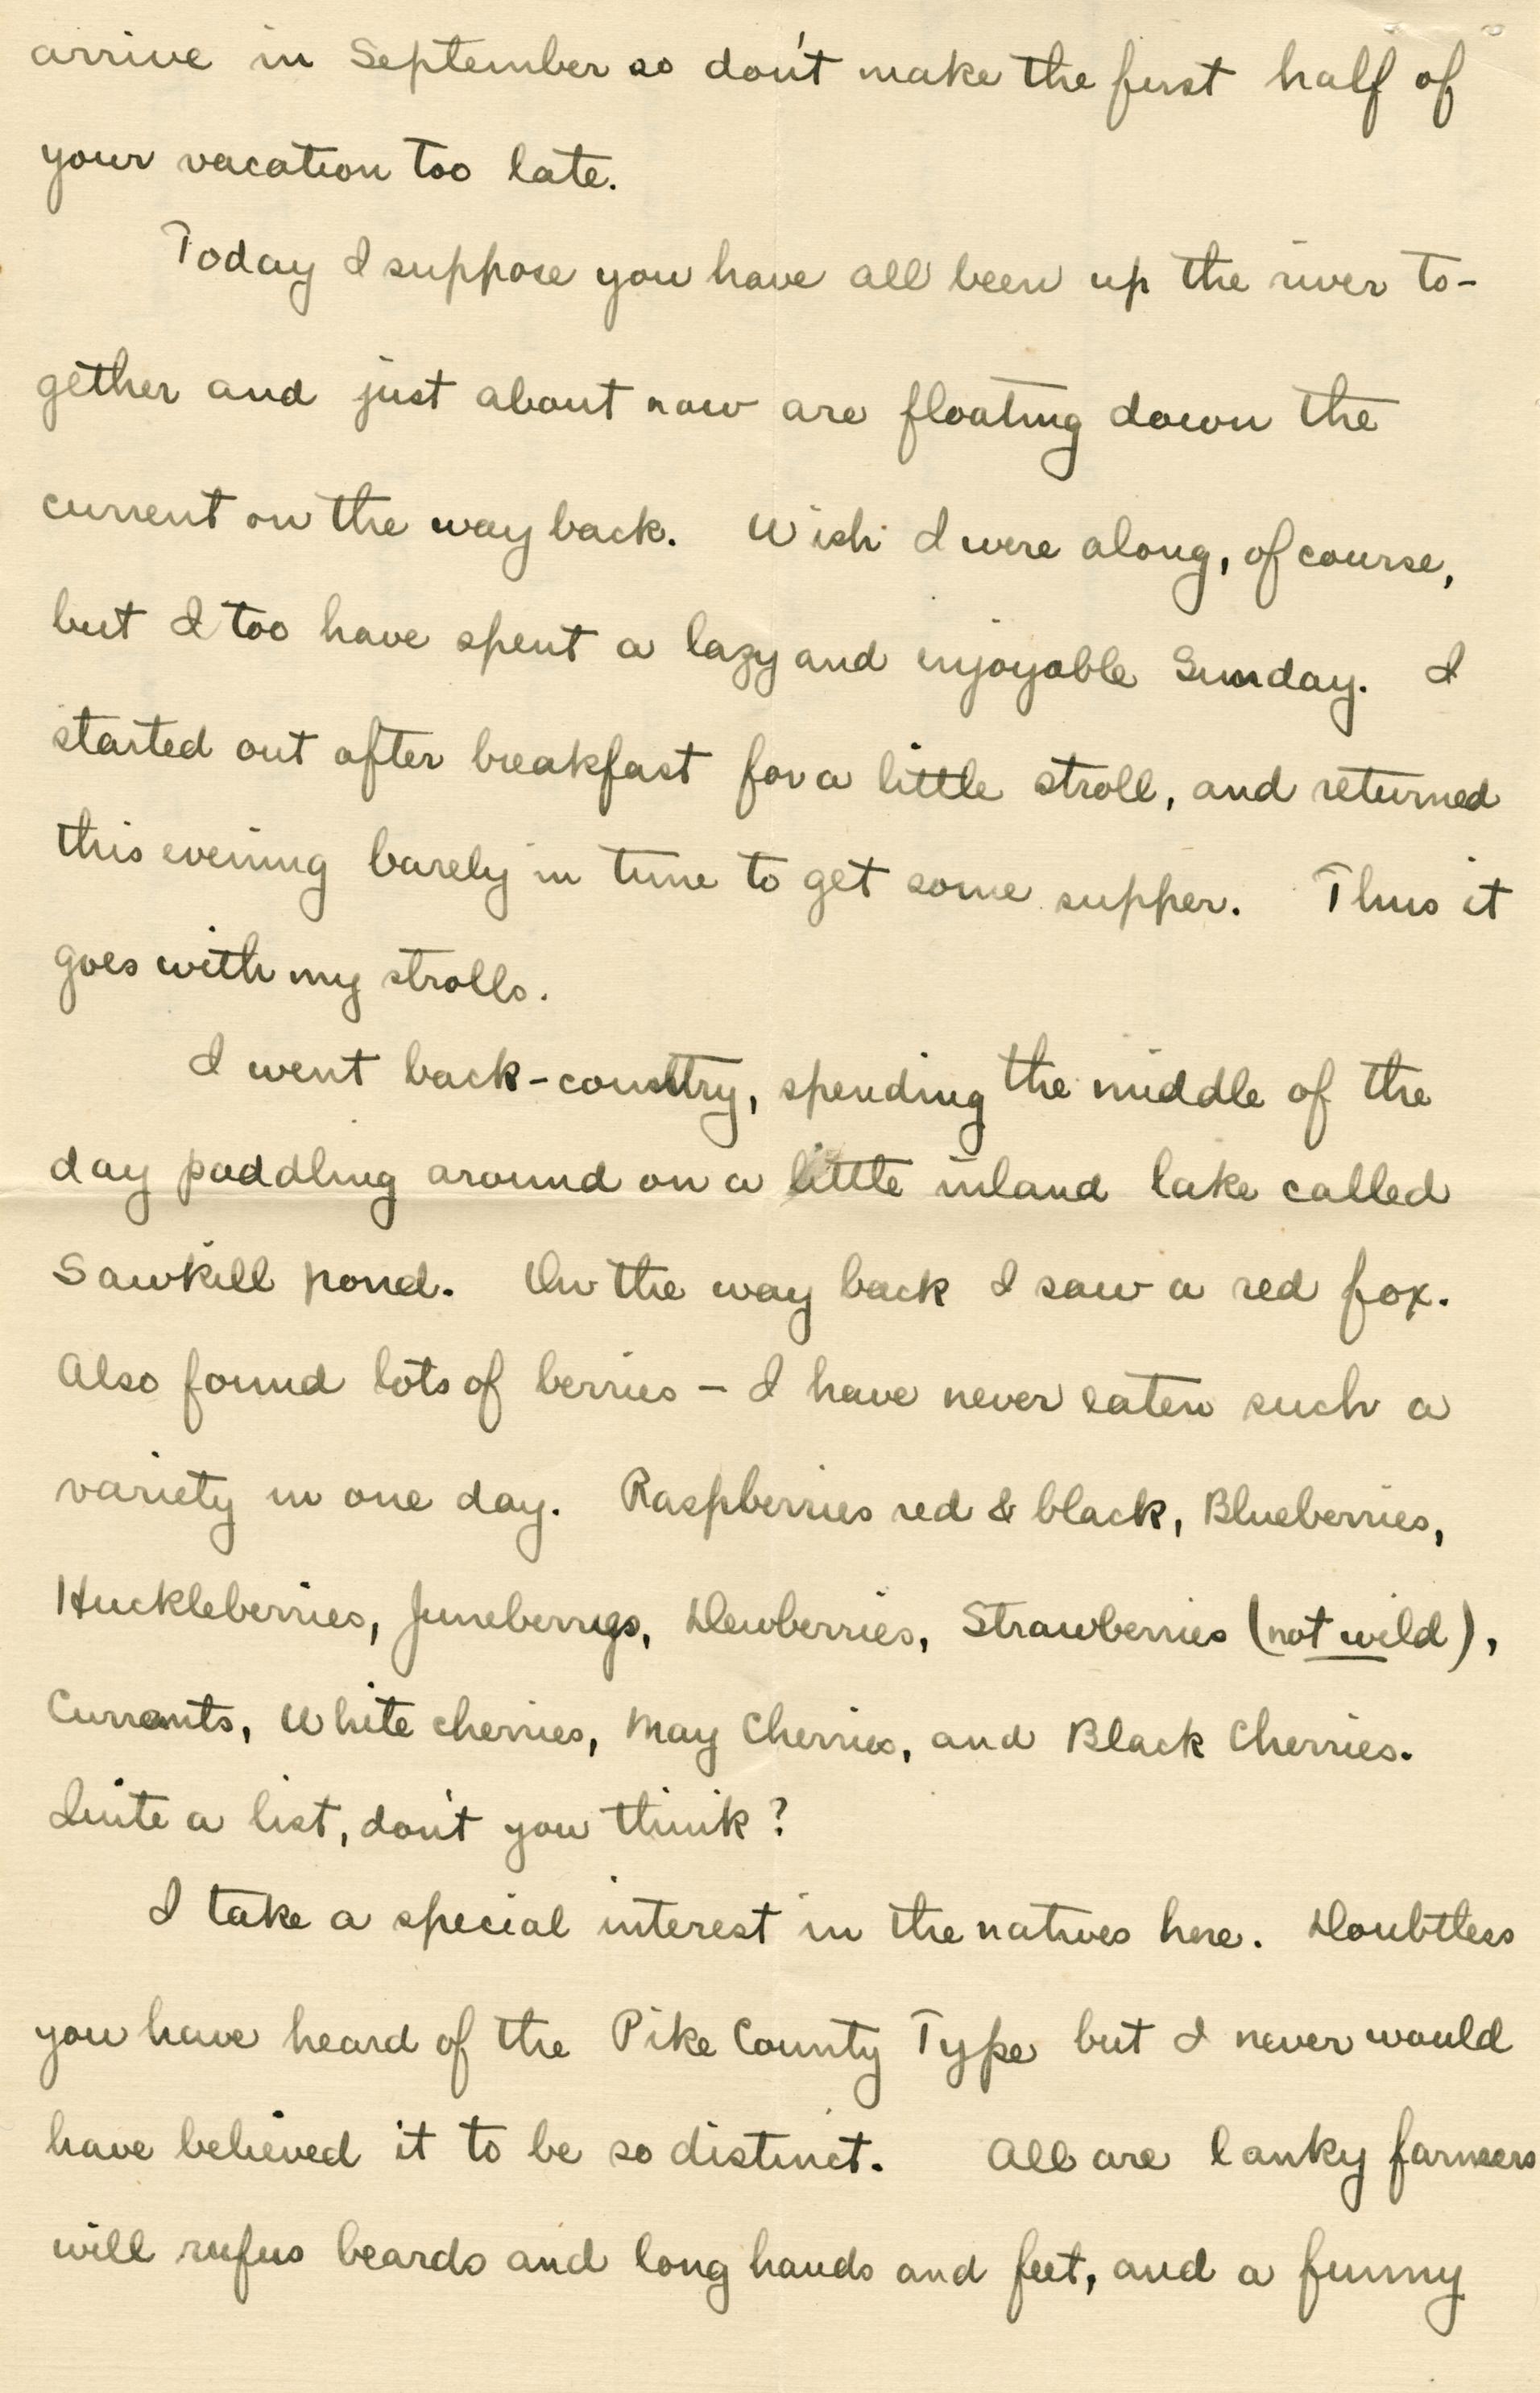 arrive in September so don't make the first half of
your vacation too late.
Today I suppose you have all been up the river to-
gether and just about now are floating down the
current on the way back. Wish I were along, of course,
but I too have spent a lazy and injoyable Sunday. I
started out after breakfast for a little stroll, and returned
this evening barely in time to get some supper. Thus it
goes with my strolls.
I went back-country, spending the middle of the
day paddling around on a little inland lake called
Sawkill pond. On the way back I saw a red fox.
Also found lots of berries – I have never eaten such a
variety in one day. Raspberries red & black, Blueberries,
Huckleberries, Juneberrys, Dewberries, Strawberries (not wild),
Currants, White cherries, May Cherries, and Black Cherries.
Quite a list, don't you think?
I take a special interest in the natives here. Doubtless
you have heard of the Pike County Type but I never would
have believed it to be so distinct. All are lanky farmers
will rufus beards and long hands and feet, and a funny